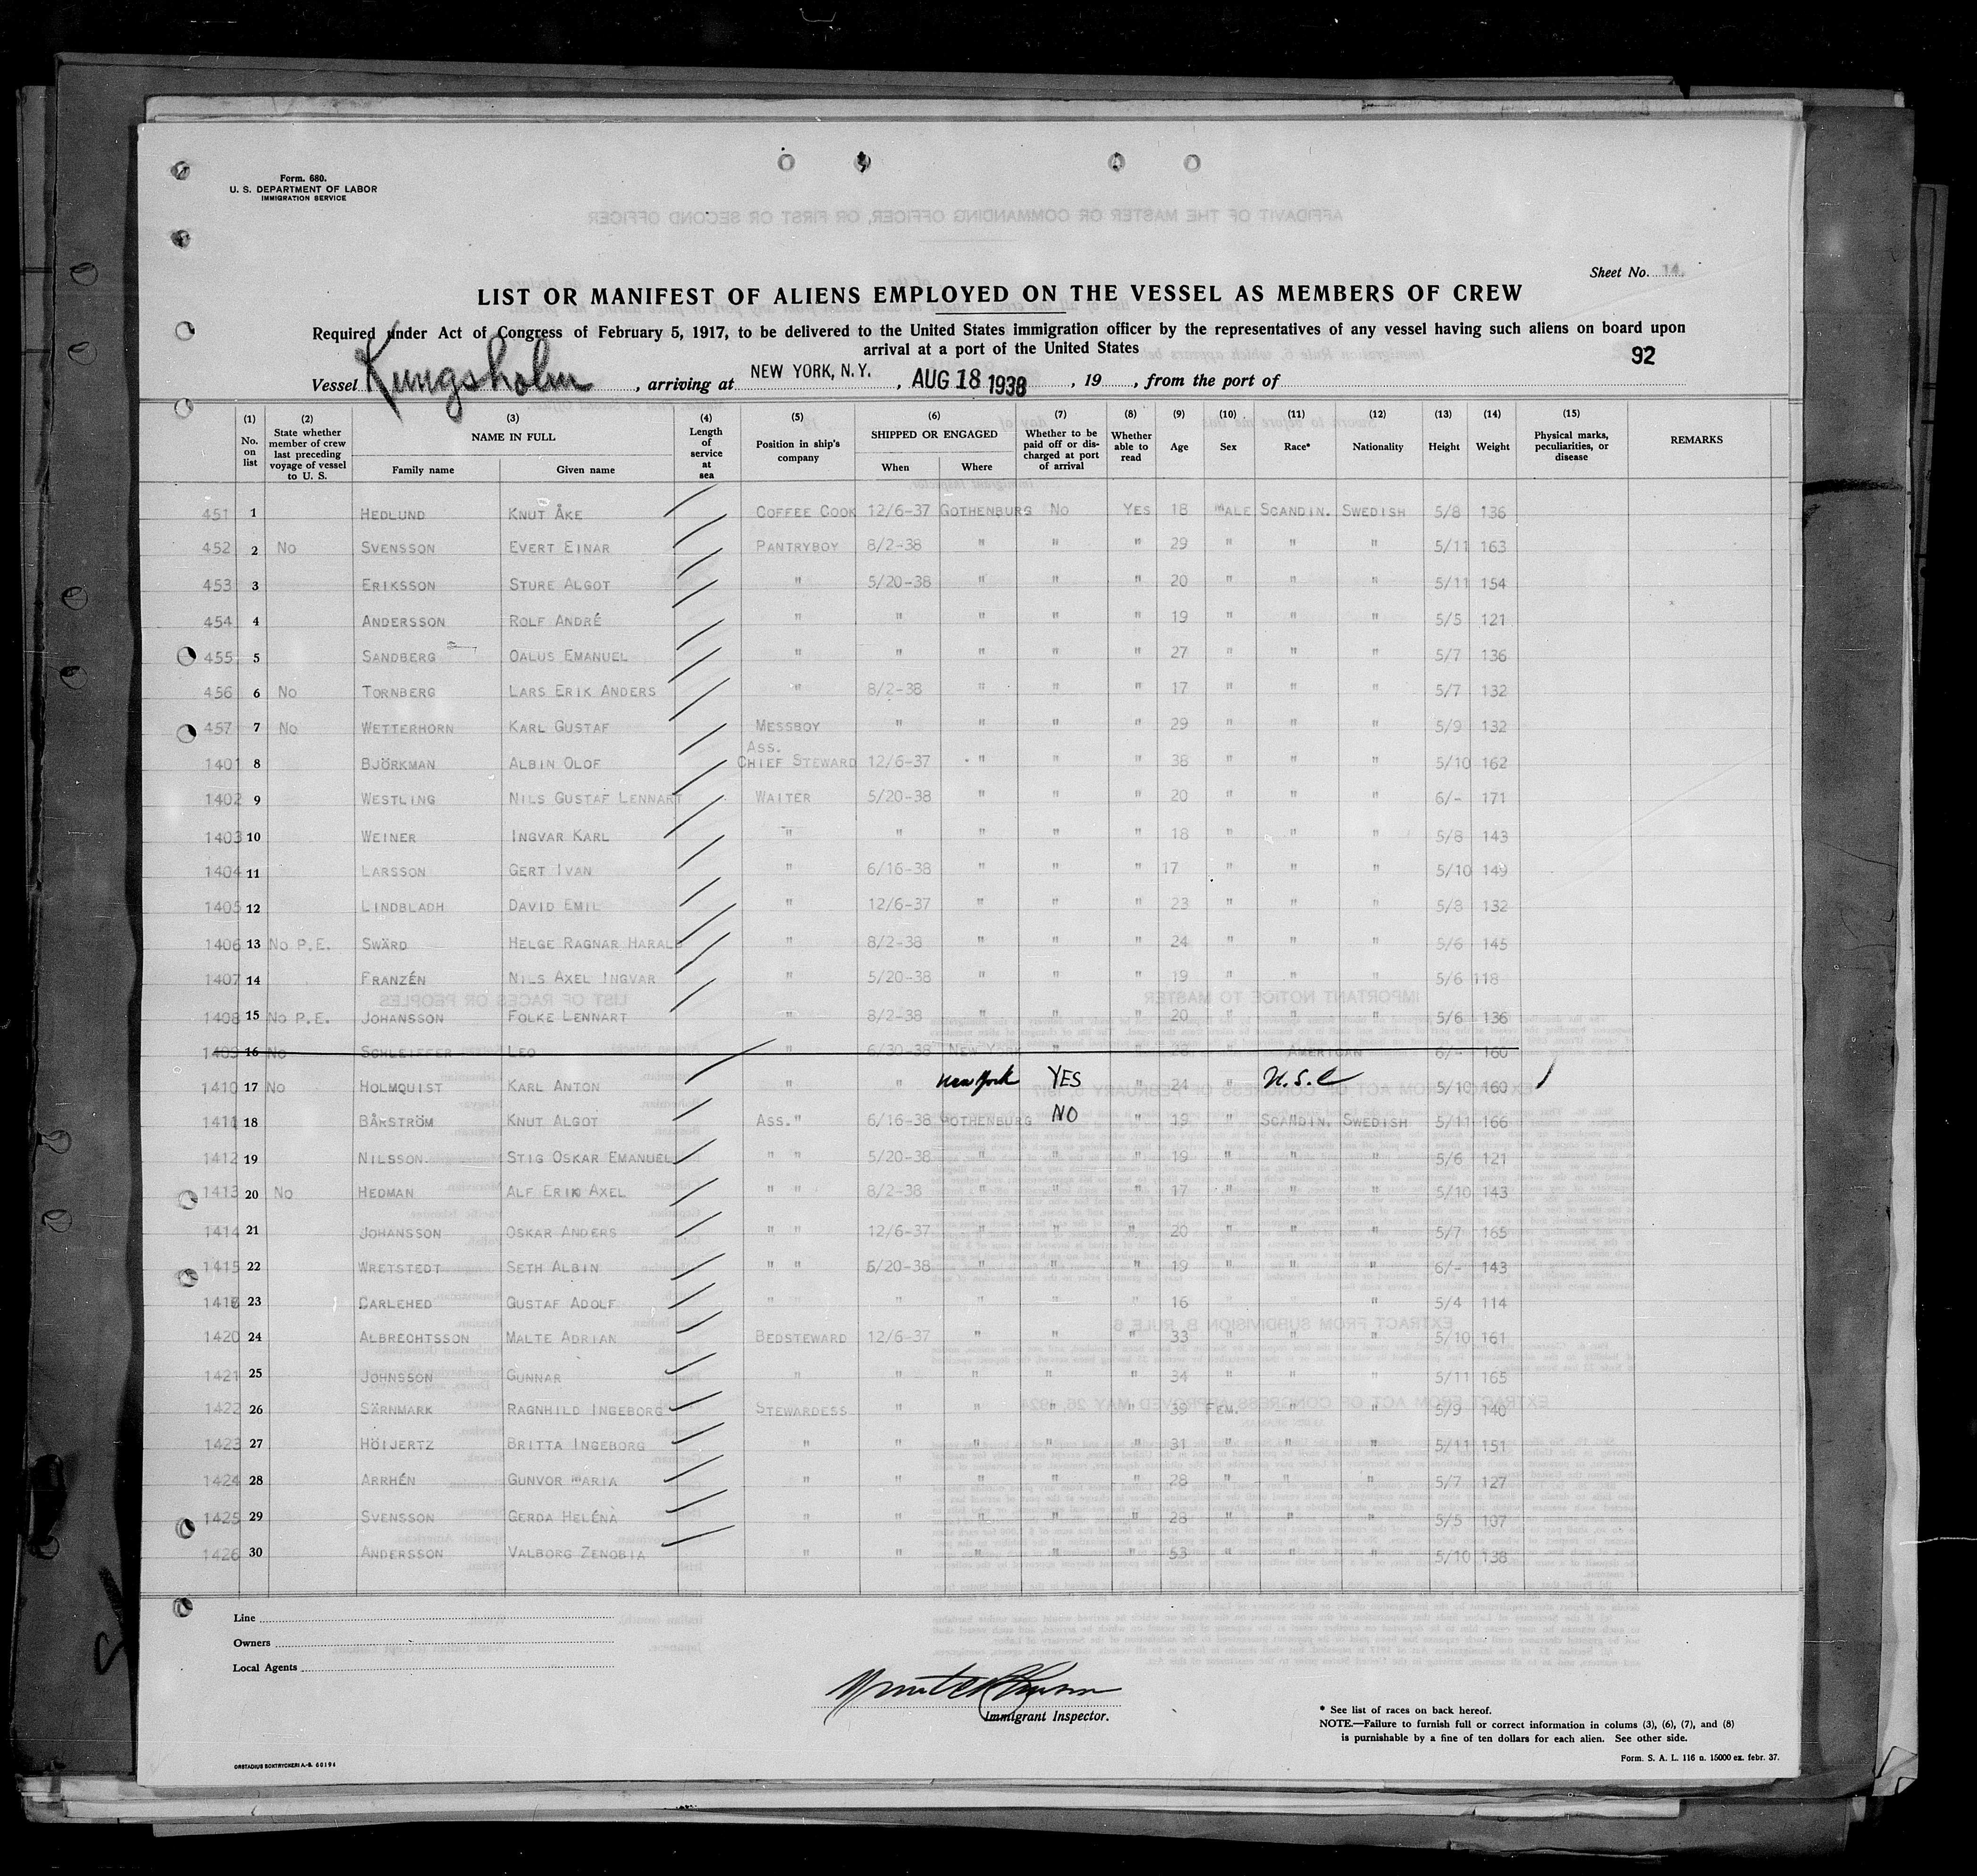 Form. 680.
U. S. DEPARTMENT OF LABOR
IMMIGRATION SERVICE
Sheet No. 14.
LIST OR MANIFEST OF ALIENS EMPLOYED ON THE VESSEL AS MEMBERS OF CREW
Required under Act of Congress of February 5, 1917, to be delivered to the United States immigration officer by the representatives of any vessel having such aliens on board upon
arrival at a port of the United States
92
Vessel Kungsholm, arriving at NEW YORK, N.Y., AUG 18 1938, 19, from the port of
(1) No. on list (2) State whether member of crew last preceding voyage of vessel to U. S. (3) NAME IN FULL Family name Given name (4) Length of service at sea (5) Position in ship's company (6) SHIPPED OR ENGAGED When Where (7) Whether to be paid off or discharged at port of arrival (8) Whether able to read (9) Age (10) Sex (11) Race* (12) Nationality (13) Height (14) Weight (15) Physical marks, peculiarities, or disease REMARKS
451 1 HEDLUND KNUT ÅKE COFFEE COOK 12/6-37 GOTHENBURG NO YES 18 MALE SCANDIN. SWEDISH 5/8 136
452 2 NO SVENSSON EVERT EINAR PANTRYBOY 8/2-38 " " " 29 " " " 5/11 163
453 3 ERIKSSON STURE ALGOT " 5/20-38 " " " 20 " " " 5/11 154
454 4 ANDERSSON ROLF ANDRÉ " " " " " 19 " " " 5/5 121
455 5 SANDBERG OALUS EMANUEL " " " " " 27 " " " 5/7 136
456 6 NO TORNBERG LARS ERIK ANDERS " 8/2-38 " " " 17 " " " 5/7 132
457 7 NO WETTERHORN KARL GUSTAF MESSBOY " " " " 29 " " " 5/9 132
1401 8 BJÖRKMAN ALBIN OLOF ASS. CHIEF STEWARD 12/6-37 " " " 38 " " " 5/10 162
1402 9 WESTLING NILS GUSTAF LENNART WAITER 5/20-38 " " " 20 " " " 6/- 171
1403 10 WEINER INGVAR KARL " " " " " 18 " " " 5/8 143
1404 11 LARSSON GERT IVAN " 6/16-38 " " " 17 " " " 5/10 149
1405 12 LINDBLADH DAVID EMIL " 12/6-37 " " " 23 " " " 5/8 132
1406 13 NO P.E. SWÄRD HELGE RAGNAR HARALD " 8/2-38 " " " 24 " " " 5/6 145
1407 14 FRANZÉN NILS AXEL INGVAR " 5/20-38 " " " 19 " " " 5/6 118
1408 15 NO P.E. JOHANSSON FOLKE LENNART " 8/2-38 " " " 20 " " " 5/6 136
1409 16 NO SCHLEIFFER LEO " 6/30-38 NEW YORK " " 28 " AMERICAN 6/- 160
1410 17 NO HOLMQUIST KARL ANTON " " New York YES " 24 " U.S.C 5/10 160
1411 18 BÅRSTRÖM KNUT ALGOT ASS. " 6/16-38 GOTHENBURG NO " 19 " SCANDIN. SWEDISH 5/11 166
1412 19 NILSSON STIG OSKAR EMANUEL " " 5/20-38 " " " 19 " " " 5/6 121
1413 20 NO HEDMAN ALF ERIK AXEL " " 8/2-38 " " " 17 " " " 5/10 143
1414 21 JOHANSSON OSKAR ANDERS " " 12/6-37 " " " 20 " " " 5/7 165
1415 22 WRETSTEDT SETH ALBIN " " 5/20-38 " " " 19 " " " 6/- 143
23 CARLEHED GUSTAF ADOLF " " " " " " 16 " " " 5/4 114
1420 24 ALBRECHTSSON MALTE ADRIAN BEDSTEWARD 12/6-37 " " " 33 " " " 5/10 161
1421 25 JOHNSSON GUNNAR " " " " " 34 " " " 5/11 165
1422 26 SÄRNMARK RAGNHILD INGEBORG STEWARDESS " " " " 39 FEM. " " 5/9 140
1423 27 HÖIJERTZ BRITTA INGEBORG " " " " " 31 " " " 5/11 151
1424 28 ARRHÉN GUNVOR MARIA " " " " " 28 " " " 5/7 127
1425 29 SVENSSON GERDA HELÉNA " " " " " 28 " " " 5/5 107
1426 30 ANDERSSON VALBORG ZENOBIA " " " " " 53 " " " 5/10 138
Line
Owners
Local Agents
Immigrant Inspector.
* See list of races on back hereof.
NOTE.—Failure to furnish full or correct information in colums (3), (6), (7), and (8)
is punishable by a fine of ten dollars for each alien. See other side.
ORSTADIUS BOKTRYCKERI A.-B. 60194
Form. S. A. L. 116 n. 15000 ex. febr. 37.